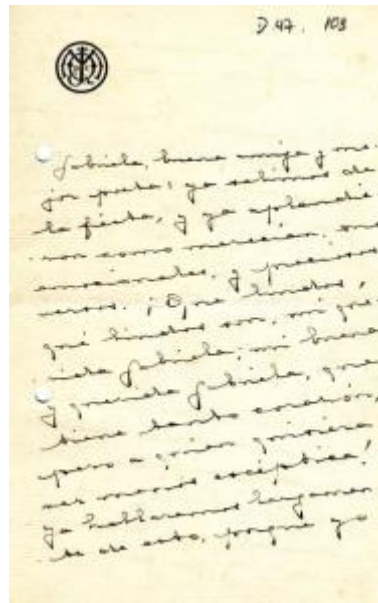 D 47. 103
Gabriela, buena amiga y me-
jor poeta: ya salimos de
la fiesta, y ya aplaudie
ron como merecían, sus
emocionales y preciosos
versos. ¡Qué lindos,
qué lindos son, mi que
rida Gabriela; mi buena
y querida Gabriela, que
tiene tanto corazón,
pero a quien quisiera
ver menos escéptica!
Ya hablaremos largamen
te de esto, porque yo